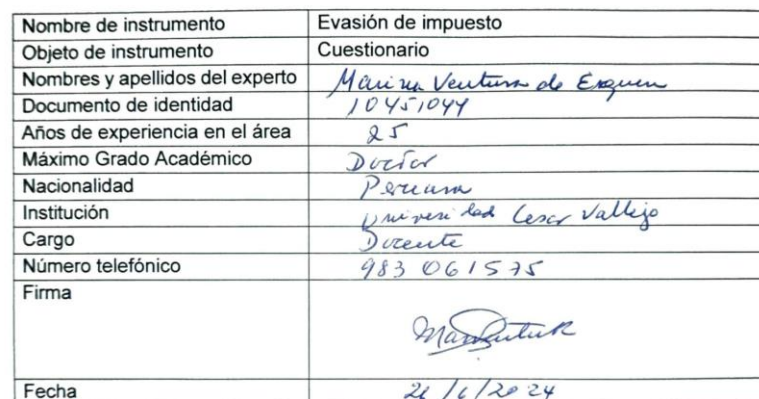 Nombre de instrumento Evasión de impuesto
Objeto de instrumento Cuestionario
Nombres y apellidos del experto Marina Ventura de Esquen
Documento de identidad 10451044
Años de experiencia en el área 25
Máximo Grado Académico Doctor
Nacionalidad Peruana
Institución Universidad Cesar Vallejo
Cargo Docente
Número telefónico 983 061575
Firma
Fecha /6/2024